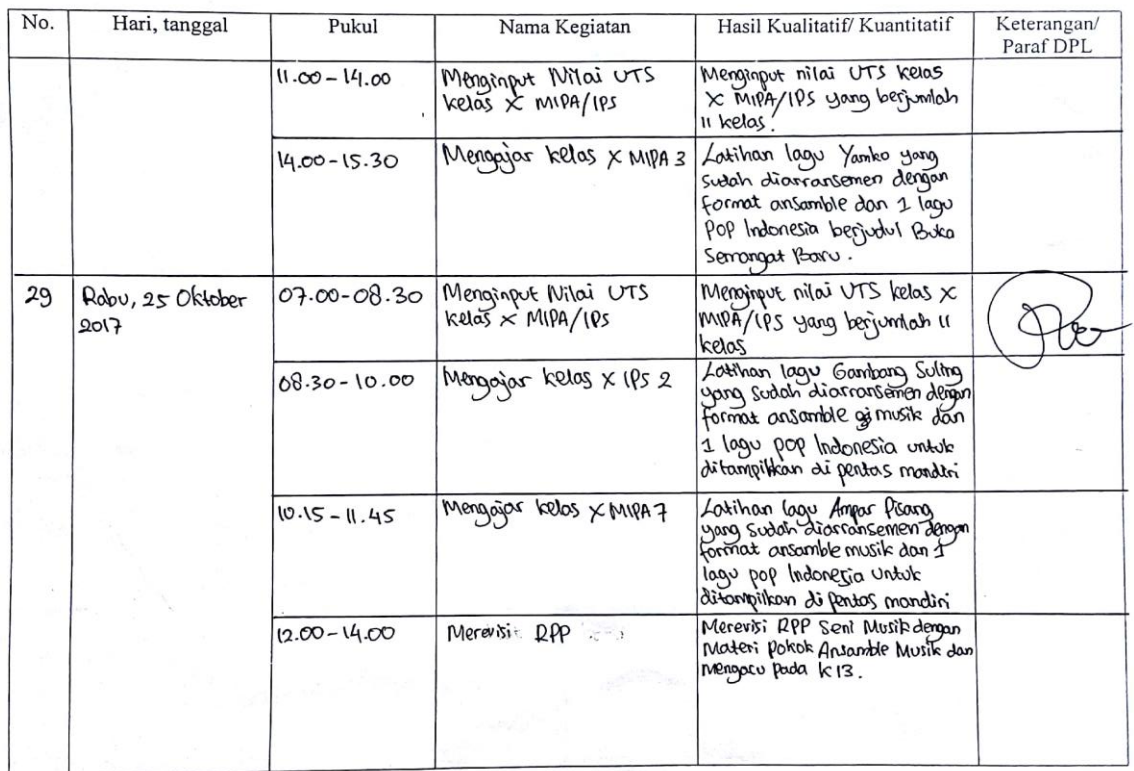 No. Hari, tanggal Pukul Nama Kegiatan Hasil Kualitatif/ Kuantitatif Keterangan/
Paraf DPL
11.00 – 14.00 Menginput Nilai UTS Menginput nilai UTS kelas
kelas X MIPA/IPS X MIPA/IPS yang berjumlah
11 kelas.
14.00 – 15.30 Mengajar kelas X MIPA 3 Latihan lagu Yamko yang
sudah diarransemen dengan
format ansamble dan 1 lagu
Pop Indonesia berjudul Buka
Semangat Baru.
29 Rabu, 25 Oktober 07.00 – 08.30 Menginput Nilai UTS Menginput nilai UTS kelas X
2017 kelas X MIPA/IPS MIPA/IPS yang berjumlah 11
kelas
08.30 – 10.00 Mengajar kelas X IPS 2 Latihan lagu Gambang Suling
yang sudah diarransemen dengan
format ansamble musik dan
1 lagu pop Indonesia untuk
ditampilkan di pentas mandiri
10.15 – 11.45 Mengajar kelas X MIPA 7 Latihan lagu Ampar Pisang
yang sudah diarransemen dengan
format ansamble musik dan 1
lagu pop Indonesia untuk
ditampilkan di pentas mandiri
12.00 – 14.00 Merevisi RPP Merevisi RPP Seni Musik dengan
Materi Pokok Ansamble Musik dan
Mengacu pada K13.